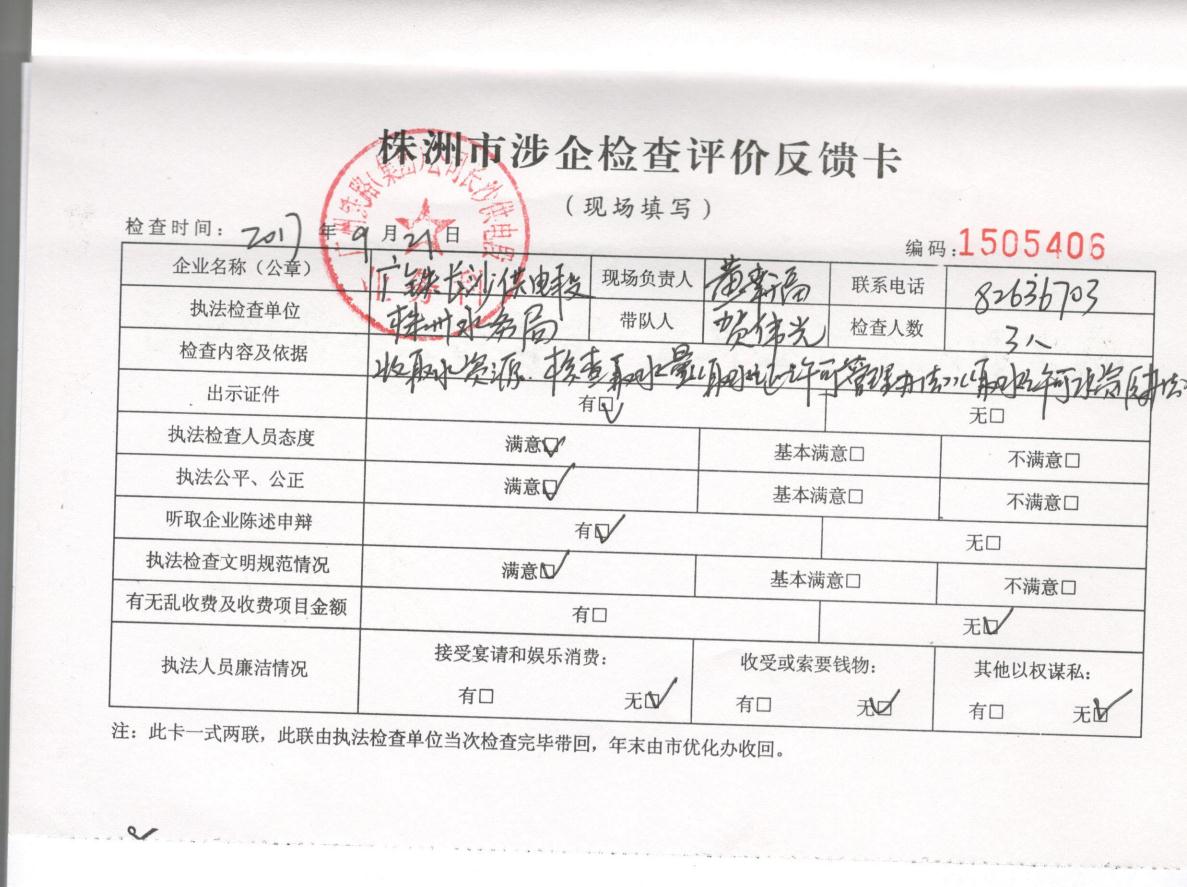 株洲市涉企检查评价反馈卡
（现场填写）
检查时间：2017年9月21日
编码：1505406
广州铁路（集团）公司长沙供电段
企业名称（公章） 广铁长沙供电段 现场负责人 联系电话 82636703
执法检查单位 株洲水务局 带队人 贺伟光 检查人数 3人
检查内容及依据 收取水资源、核查取水量
出示证件 有☑ 无□
执法检查人员态度 满意☑ 基本满意□ 不满意□
执法公平、公正 满意☑ 基本满意□ 不满意□
听取企业陈述申辩 有☑ 无□
执法检查文明规范情况 满意☑ 基本满意□ 不满意□
有无乱收费及收费项目金额 有□ 无☑
执法人员廉洁情况 接受宴请和娱乐消费： 收受或索要钱物： 其他以权谋私：
有□ 无☑ 有□ 无☑ 有□ 无☑
注：此卡一式两联，此联由执法检查单位当次检查完毕带回，年末由市优化办收回。